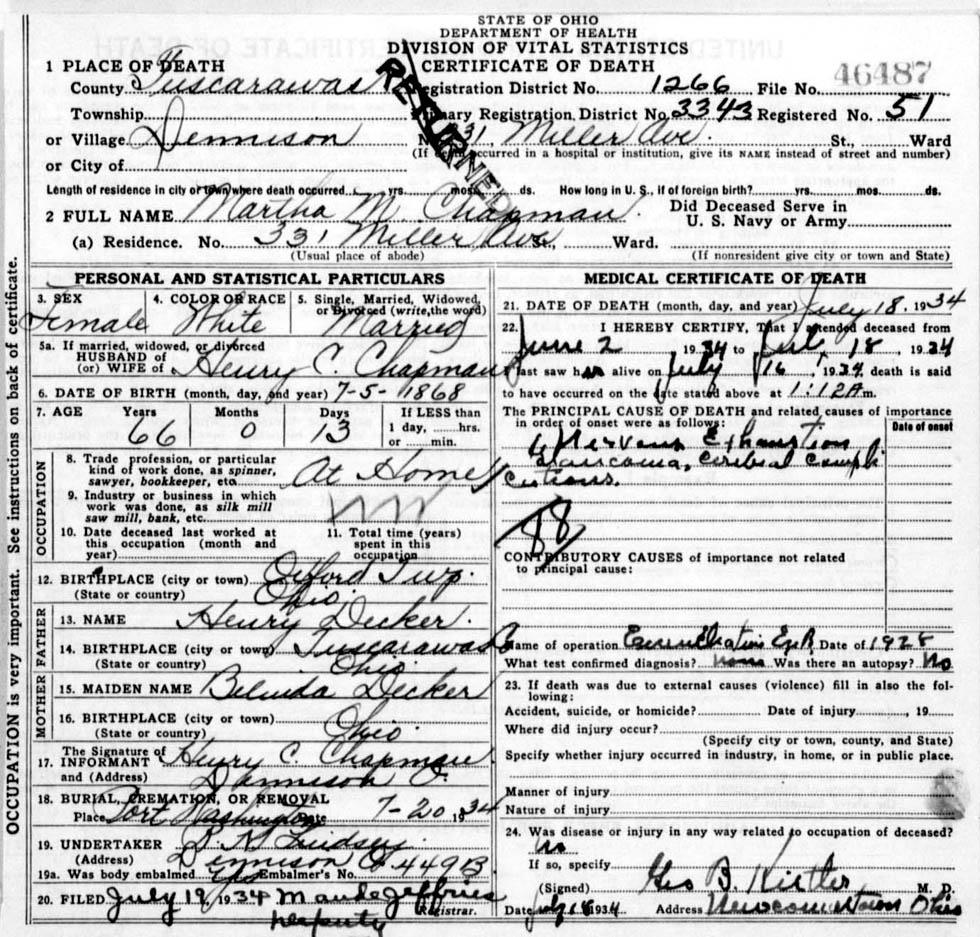 STATE OF OHIO
DEPARTMENT OF HEALTH
DIVISION OF VITAL STATISTICS
CERTIFICATE OF DEATH
46487
RETURNED
1 PLACE OF DEATH
County Tuscarawas Registration District No. 1266 File No.
Township Primary Registration District No. 3343 Registered No. 51
or Village Dennison No. 331 Miller Ave. St., Ward
(If death occurred in a hospital or institution, give its NAME instead of street and number)
or City of
Length of residence in city or town where death occurred yrs. mos. ds. How long in U. S., if of foreign birth? yrs. mos. ds.
2 FULL NAME Martha M. Chapman Did Deceased Serve in U. S. Navy or Army
(a) Residence. No. 331 Miller Ave St., Ward.
(Usual place of abode) (If nonresident give city or town and State)
OCCUPATION is very important. See instructions on back of certificate.
PERSONAL AND STATISTICAL PARTICULARS
3. SEX Female
4. COLOR OR RACE White
5. Single, Married, Widowed, or Divorced (write the word) Married
5a. If married, widowed, or divorced
HUSBAND of
(or) WIFE of Henry C. Chapman
6. DATE OF BIRTH (month, day, and year) 7-5-1868
7. AGE Years 66 Months 0 Days 13 If LESS than 1 day, hrs. or min.
OCCUPATION
8. Trade, profession, or particular
kind of work done, as spinner,
sawyer, bookkeeper, etc. At Home
9. Industry or business in which
work was done, as silk mill
saw mill, bank, etc.
10. Date deceased last worked at
this occupation (month and
year)
11. Total time (years)
spent in this
occupation
12. BIRTHPLACE (city or town) Oxford Twp.
(State or country) Ohio.
FATHER
13. NAME Henry Decker.
14. BIRTHPLACE (city or town) Tuscarawas Co
(State or country) Ohio.
MOTHER
15. MAIDEN NAME Belinda Decker
16. BIRTHPLACE (city or town)
(State or country) Ohio.
17. The Signature of
INFORMANT Henry C. Chapman
and (Address) Dennison O.
18. BURIAL, CREMATION, OR REMOVAL
Place Port Washington Date 7-20 1934
19. UNDERTAKER Lindsey
(Address) Dennison O. 449B
19a. Was body embalmed Yes Embalmer's No.
20. FILED July 19, 1934 Maude Jeffries
Registrar.
Deputy
MEDICAL CERTIFICATE OF DEATH
21. DATE OF DEATH (month, day, and year) July 18, 1934
22. I HEREBY CERTIFY, That I attended deceased from
June 2 1934 to July 18, 1934
I last saw her alive on July 16, 1934, death is said
to have occurred on the date stated above at 1:12 A m.
The PRINCIPAL CAUSE OF DEATH and related causes of importance
in order of onset were as follows: Date of onset
Nervous Exhaustion
Glaucoma, cerebral compli
cations.
88
CONTRIBUTORY CAUSES of importance not related
to principal cause:
Name of operation Enucleation Eye B Date of 1928
What test confirmed diagnosis? none Was there an autopsy? No
23. If death was due to external causes (violence) fill in also the fol-
lowing:
Accident, suicide, or homicide? Date of injury , 19
Where did injury occur?
(Specify city or town, county, and State)
Specify whether injury occurred in industry, in home, or in public place.
Manner of injury
Nature of injury
24. Was disease or injury in any way related to occupation of deceased?
No
If so, specify
(Signed) Geo B. Kistler M. D.
Date July 18 1934 Address Newcomerstown Ohio